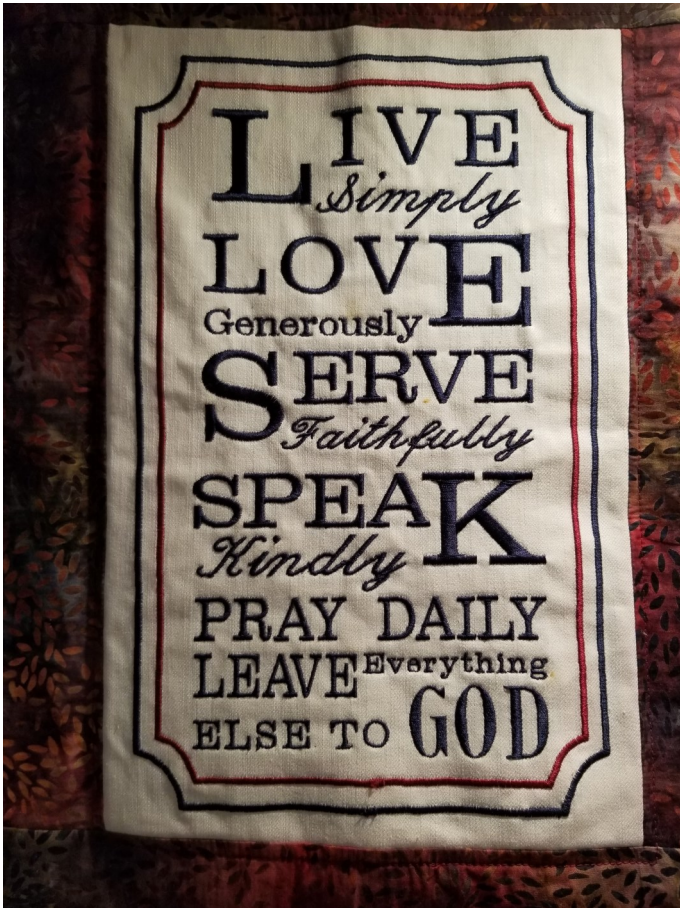 LIVE
Simply
LOVE
Generously
SERVE
Faithfully
SPEAK
Kindly
PRAY DAILY
LEAVE Everything
ELSE TO GOD